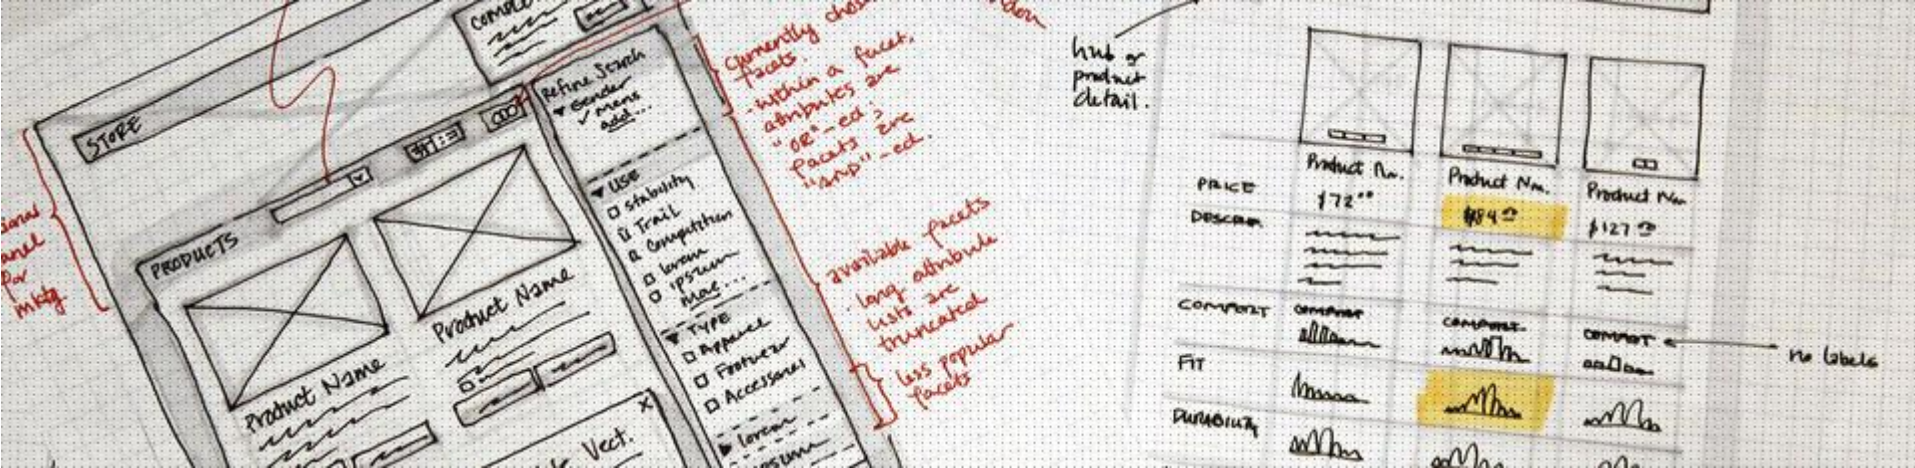 STORE
PRODUCTS
Product Name
Product Name
Vect.
Refine Search
Gender
✓ mens
add...
USE
stability
Trail
Competition
lorem
ipsum
more...
TYPE
Apparel
Footwear
Accessories
lorem
ipsum
panel
for
mktg.
Currently
facets.
- within a facet,
attributes are
"OR"-ed;
facets are
"AND"-ed.
available facets
- long attribute
lists are
truncated
less popular
facets
hub or
product
detail.
Product Nm.
Product Nm.
Product Nm
PRICE
$72.00
$84
$127
COMFORT
COMFORT
COMFORT
COMFORT
no labels
FIT
DURABILITY